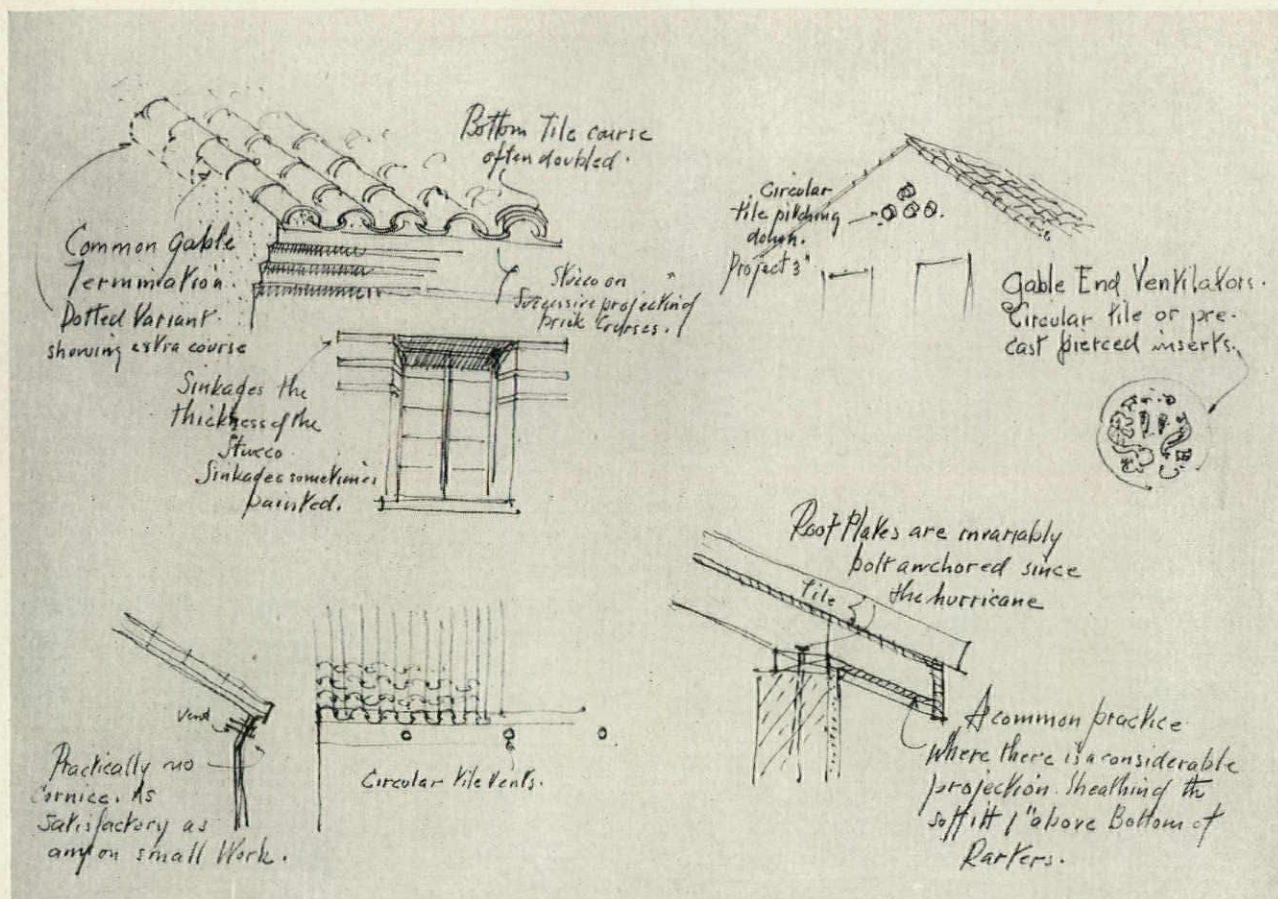 Bottom Tile course
often doubled.
Common gable
Termination.
Dotted Variant.
showing extra course
Stucco on
Successive projecting
brick courses.
Sinkages the
thickness of the
Stucco.
Sinkages sometimes
painted.
Circular
tile pitching
down.
Project 3"
Gable End Ventilators.
Circular tile or pre-
cast pierced inserts.
Roof Plates are invariably
bolt anchored since
the hurricane
tile
Vent
Practically no
Cornice. As
Satisfactory as
any on small Work.
Circular tile vents.
A common practice
where there is a considerable
projection. Sheathing th
soffitt 1" above Bottom of
Rarters.